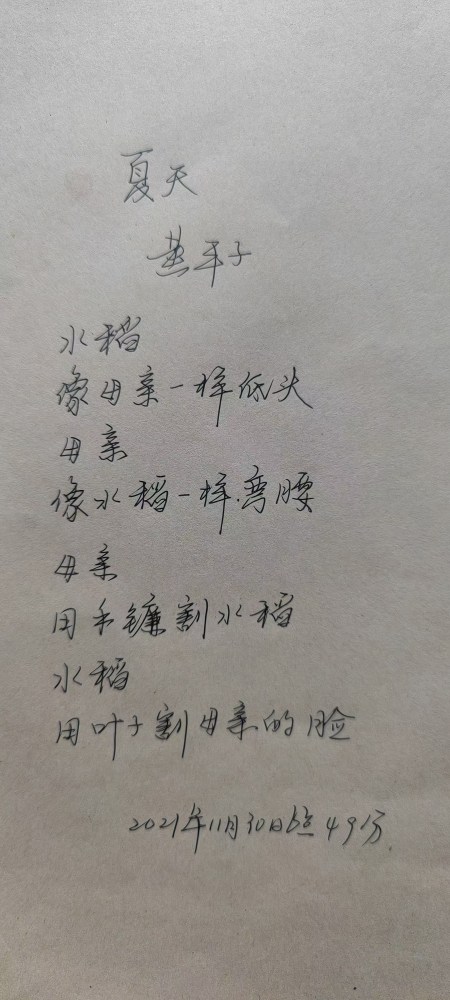 夏天
燕平子
水稻
像母亲一样低头
母亲
像水稻一样弯腰
母亲
用禾镰割水稻
水稻
用叶子割母亲的脸
2021年11月30日6点49分